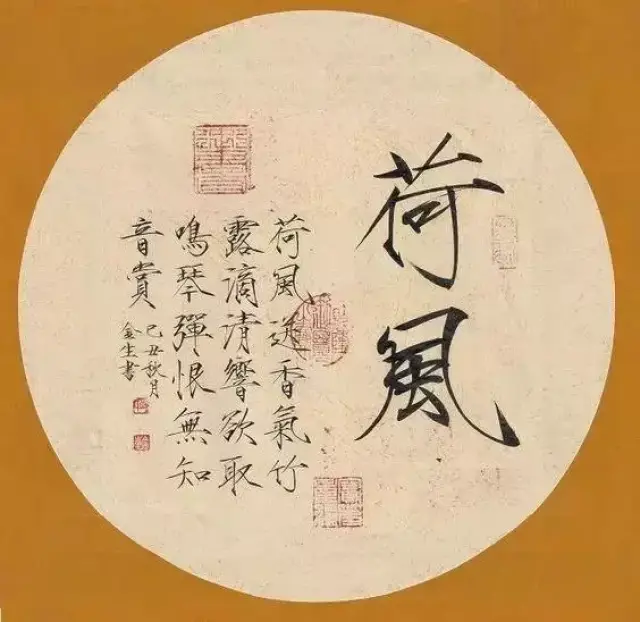 荷風
荷風送香氣竹
露滴清響欲取
鳴琴彈恨無知
音賞
己丑秋月
金生書